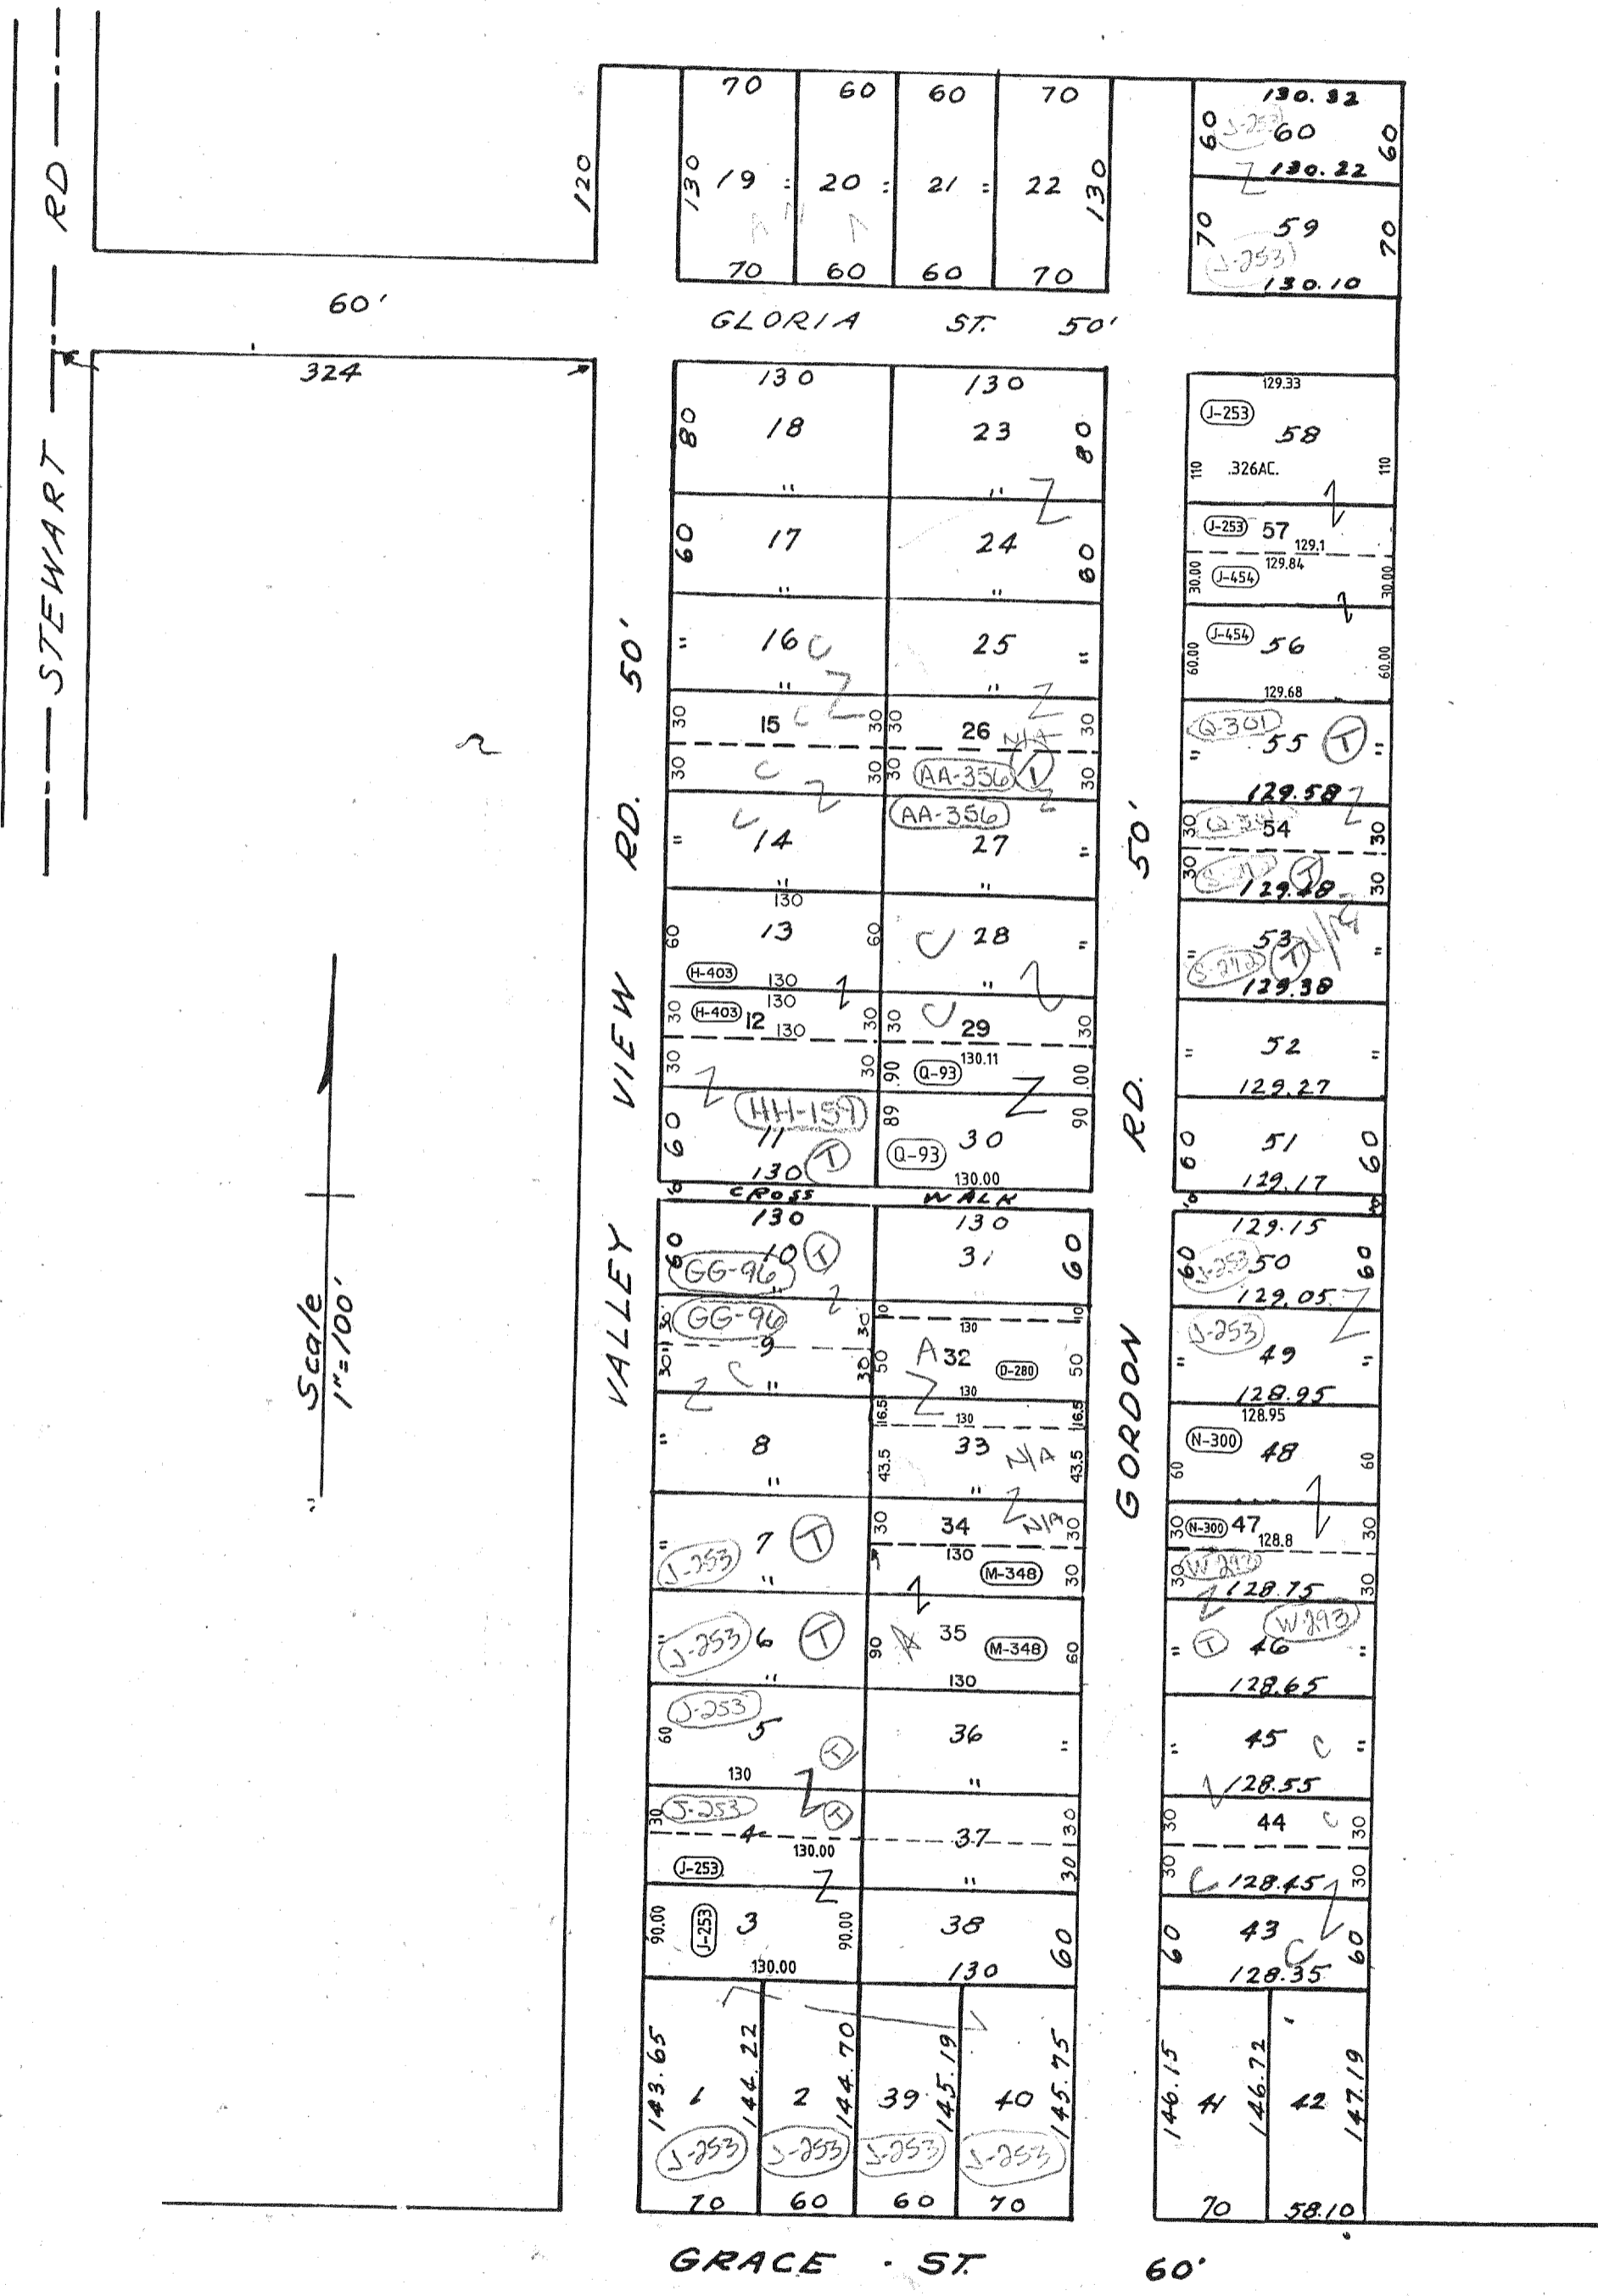 STEWART RD
120
60'
324
70 60 60 70
130 19 " 20 " 21 " 22 130
70 60 60 70
GLORIA ST. 50'
130.32
60 J-253 60 60
130.22
70 59 70
J-253
130.10
130 130
80 18 23 80
" "
60 17 24 60
" "
" 16 C 25 "
" "
30 15 C 30 30 26 N/A 30
30 C 30 30 AA-356 T 30
C AA-356
" 14 27 "
" "
130
60 13 60 C 28 "
H-403 130 "
130
30 H-403 12 130 30 30 C 29 30
30 30 .90 Q-93 130.11 .00
HH-159 89 90
60 11 30
130 T Q-93 130.00
10 CROSS WALK
130 130
60 10 T 31 60
GG-96
"
30 GG-96 30 10 130 10
9
30 " C 30 50 A 32 D-280 50
" 130
16.5 130 16.5
" 8 43.5 33 N/A 43.5
" "
" 7 T 30 34 N/A 30
J-253 130
" M-348 30
" J-253 6 T 90 A 35 M-348 60
" 130
J-253
60 5 T 36 "
130 "
30 J-253 T
4 37 30
130.00
J-253 " 30
90.00 J-253 3 90.00 38 60
130.00 130
143.65 1 144.22 2 144.70 39 145.19 40 145.75
J-253 J-253 J-253 J-253
70 60 60 70
129.33
J-253
58
110 .326AC. 110
J-253 57
129.1
129.84
30.00 J-454 30.00
J-454
60.00 56 60.00
129.68
Q-301
" 55 T "
129.58
30 54 30
30 T 30
129.48
53 N/A
" S-292 T "
129.38
" 52 "
129.27
60 51 60
129.17
10
129.15
60 J-253 50 60
129.05
J-253
" 49 "
128.95
128.95
N-300 48
60 60
30 N-300 47 30
128.8
30 W-293 30
128.75
W-293
" T 46 "
128.65
" 45 C "
128.55
30 44 C 30
30 C 128.45 30
60 43 C 60
128.35
146.15 41 146.72 42 147.19
70 58.10
VALLEY VIEW RD. 50'
GORDON RD. 50'
Scale
1"=100'
GRACE ST. 60'